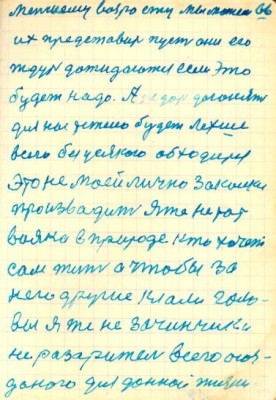 меншему возро сту мы можем
их представит пуст они его
ждут дожидаются если это
будет надо. А
для нас это будет легше
всего без усякого обходится
Это не моей лично законки
производит Я то не рот
в природе кто хочет
сам жит а чтобы за
него другие клали голо-
вы Я же не зачинчик и
не разарител всего соз-
даного для данной жизни